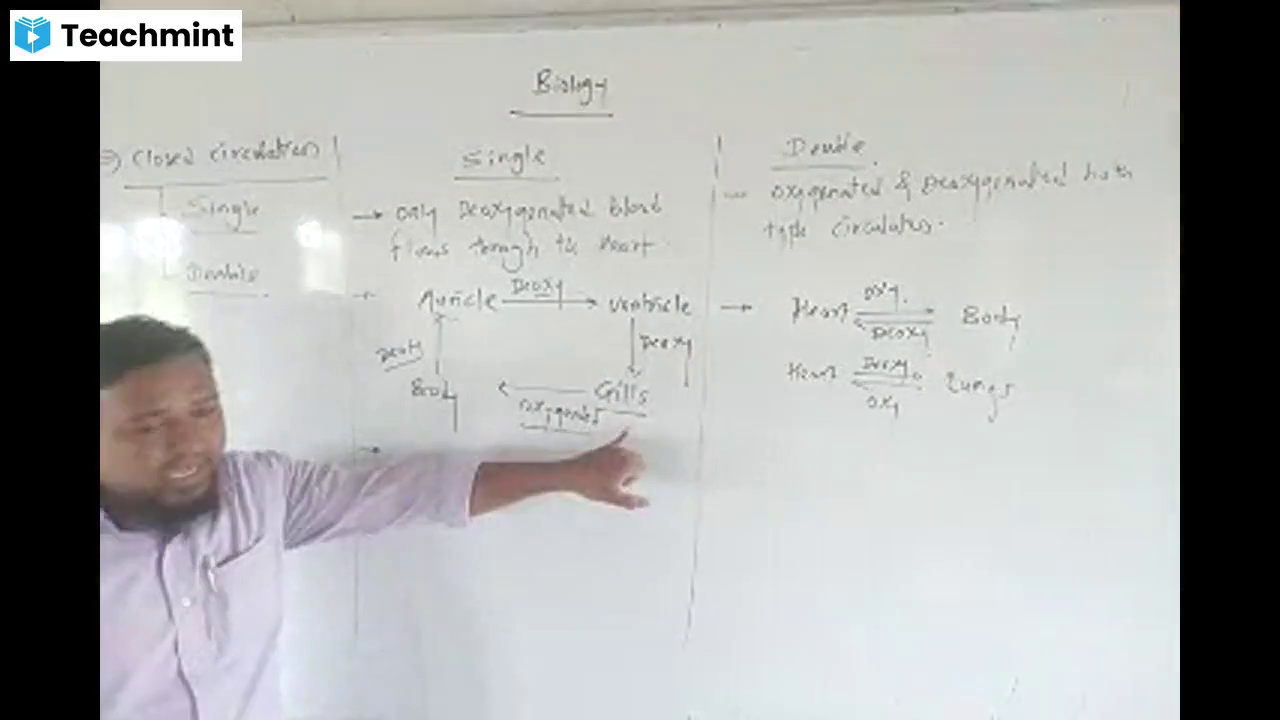 Teachmint
Biology
Closed circulation
Single
Double
Single
→ only Deoxygenated blood
flows through to heart.
Auricle Deoxy → ventricle
Deoxy
Body ← Gills
oxygenated
Double
oxygenated & Deoxygenated both
type circulates.
→ Heart oxy. Body
Deoxy
Heart Deoxy. Lungs
oxy